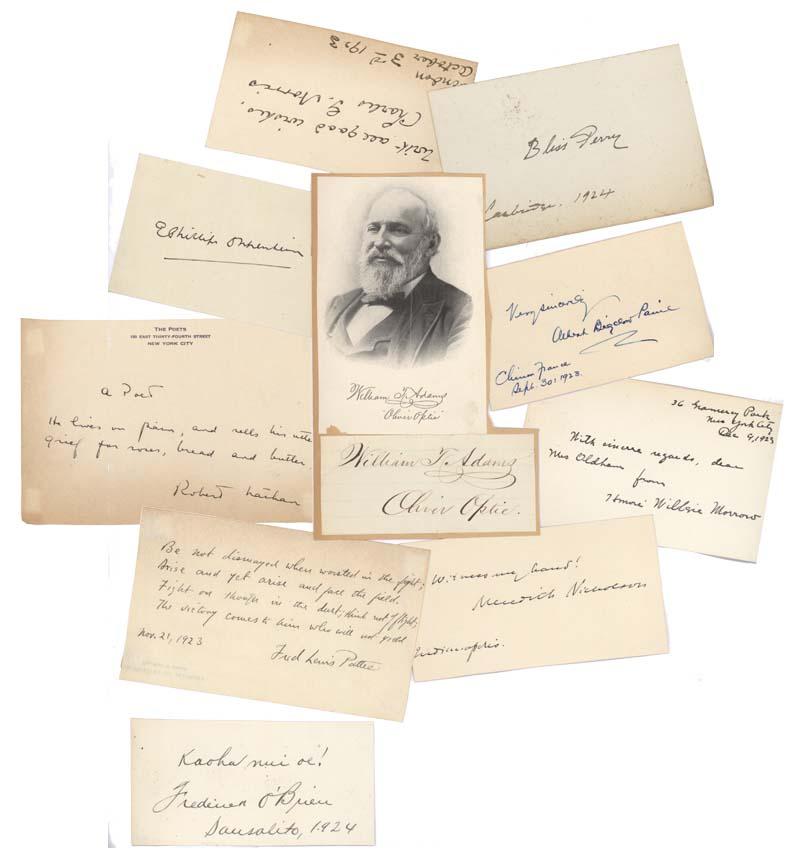 With all good wishes,
Charles G. Norris
London
October 3rd 1923
Bliss Perry
Cambridge, 1924
E Phillips Oppenheim
Very sincerely
Albert Bigelow Paine
Chinon France
Sept. 30, 1923.
THE POETS
EAST THIRTY-FOURTH STREET
NEW YORK CITY
A Poet
He lives on pain, and sells his
grief for roses, bread and butter.
Robert Nathan
William T. Adams
Oliver Optic
William T. Adams
Oliver Optic.
36 Gramercy Park
New York City
Dec 9, 1923
With sincere regards, dear
Mrs Oldham from
Honoré Willsie Morrow
Be not dismayed when worsted in the fight;
Arise and yet arise and face the field.
Fight on though in the dust; think not of flight;
The victory comes to him who will not yield
Nov. 21, 1923
Fred Lewis Pattee
Witness my hand!
Meredith Nicholson
Indianapolis.
Kaoha nui oe!
Frederick O'Brien
Sausalito, 1924